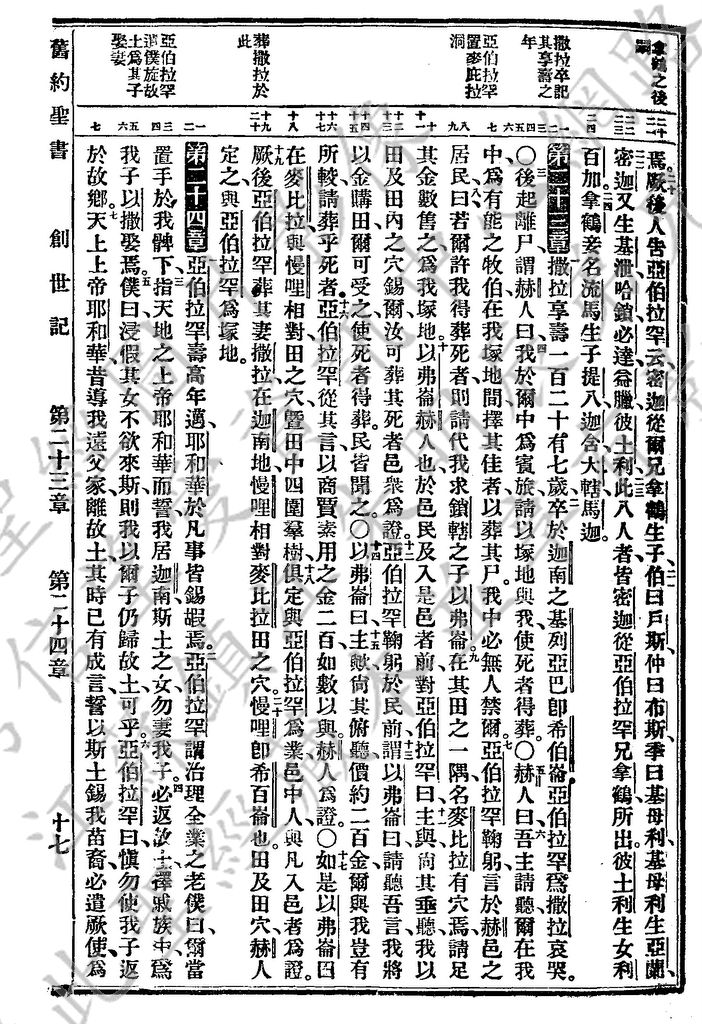 焉厥後人告亞伯拉罕云密迦從爾兄拿鶴生子伯曰戶斯仲曰布斯季曰基母利基母利生亞蘭
密迦又生基泄哈鎖必達益臘彼土利此八人者皆密迦從亞伯拉罕兄拿鶴所出彼土利生女利
百加拿鶴妾名流馬生子提八迦含大轄馬迦
第二十三章撒拉享壽一百二十有七歲卒於迦南之基列亞巴卽希伯崙亞伯拉罕爲撒拉哀哭
〇後起離尸謂赫人曰我於爾中爲賓旅請以塚地與我使死者得葬〇赫人曰吾主請聽爾在我
中爲有能之牧伯在我塚地間擇其佳者以葬其尸我中必無人禁爾亞伯拉罕鞠躬言於赫邑之
居民曰若爾許我得葬死者則請代我求鎖轄之子以弗崙在其田之一隅名麥比拉有穴焉請足
其金數售之爲我塚地以弗崙赫人也於邑民及入是邑者前對亞伯拉罕曰主與尙其垂聽我以
田及田內之穴錫爾汝可葬其死者邑衆爲證亞伯拉罕鞠躬於民前謂以弗崙曰請聽吾言我將
以金購田爾可受之使死者得葬民皆聞之〇以弗崙曰主歟尙其俯聽價約二百金爾與我豈有
所較請葬乎死者亞伯拉罕從其言以商賈素用之金二百如數以與赫人爲證〇如是以弗崙四
在麥比拉與慢哩相對田之穴暨田中四圍羣樹俱定與亞伯拉罕爲業邑中人與凡入邑者爲證
厥後亞伯拉罕葬其妻撒拉在迦南地慢哩相對麥比拉田之穴慢哩卽希百崙也田及田穴赫人
定之與亞伯拉罕爲塚地
第二十四章亞伯拉罕壽高年邁耶和華於凡事皆錫嘏焉亞伯拉罕謂治理全業之老僕曰爾當
置手於我髀下指天地之上帝耶和華而誓我居迦南斯土之女勿妻我子必返故土擇戚族中爲
我子以撒娶焉僕曰浸假其女不欲來斯則我以爾子仍歸故土可乎亞伯拉罕曰愼勿使我子返
於故鄉天上上帝耶和華昔導我遠父家離故土其時已有成言誓以斯土錫我苗裔必遣厥使爲
拿鶴之後
撒拉卒記其享壽之年
亞伯拉罕置麥庇拉洞
葬撒拉於此
亞伯拉罕遣僕旋故土爲其子娶妻
舊約聖書 創世記 第二十三章 第二十四章 十七